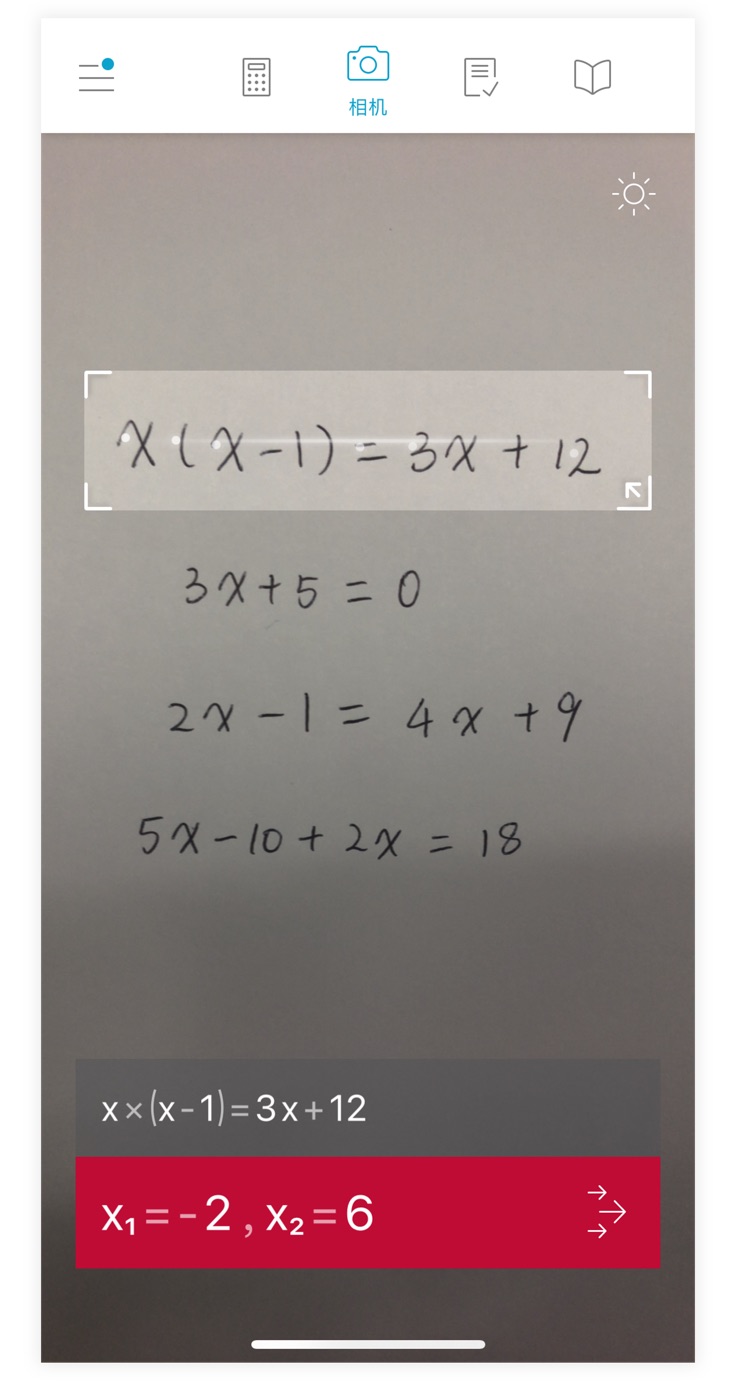 相机
x(x-1)=3x+12
3x+5=0
2x-1=4x+9
5x-10+2x=18
x×(x-1)=3x+12
x₁=-2,x₂=6